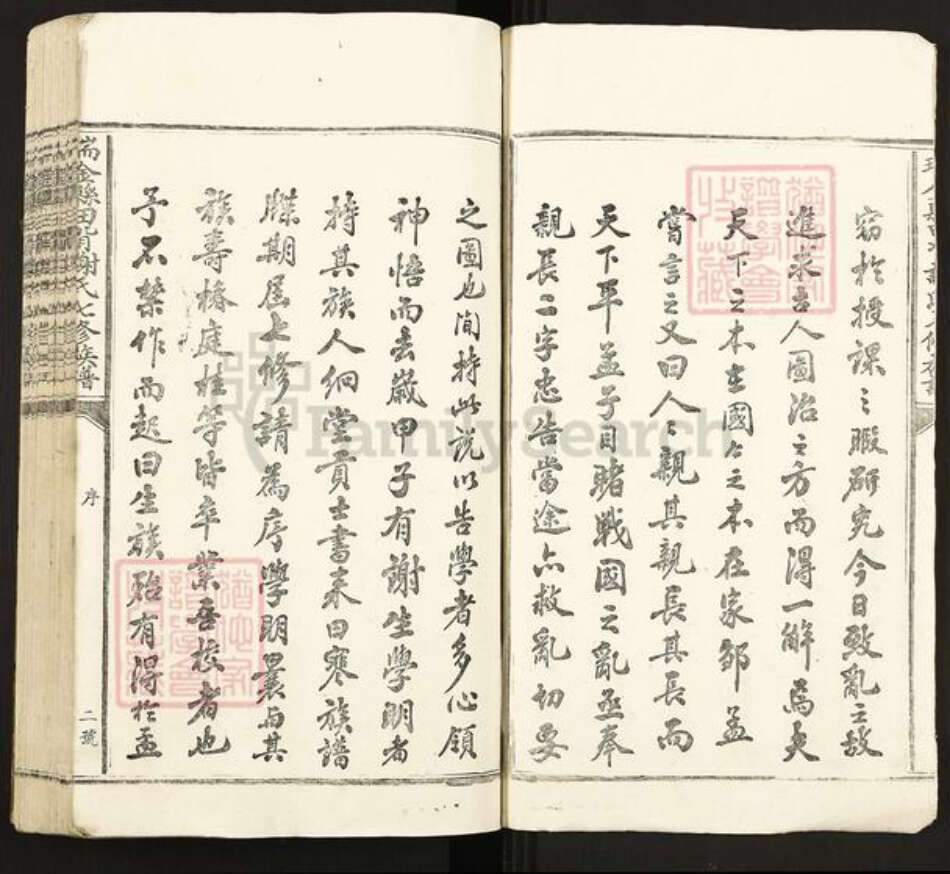 竊於授課之暇研究今日致亂之故
進求古人圖治之方而得一解焉夫
天下之本在國國之本在家鄒孟
嘗言之又曰人人親其親長其長而
天下平孟子目睹戰國之亂亟奉
親長二字忠告當途亦救亂切要
之圖也間持此說以告學者多心領
神悟而去歲甲子有謝生學明者
持其族人絅堂貢士書來曰寒族譜
牒期屆七修請為序學明曩與其
族壽椿庭桂等皆卒業吾校者也
予不禁作而起曰生族殆有得於孟
瑞金縣田背謝氏七修族譜
序
二號
FamilySearch